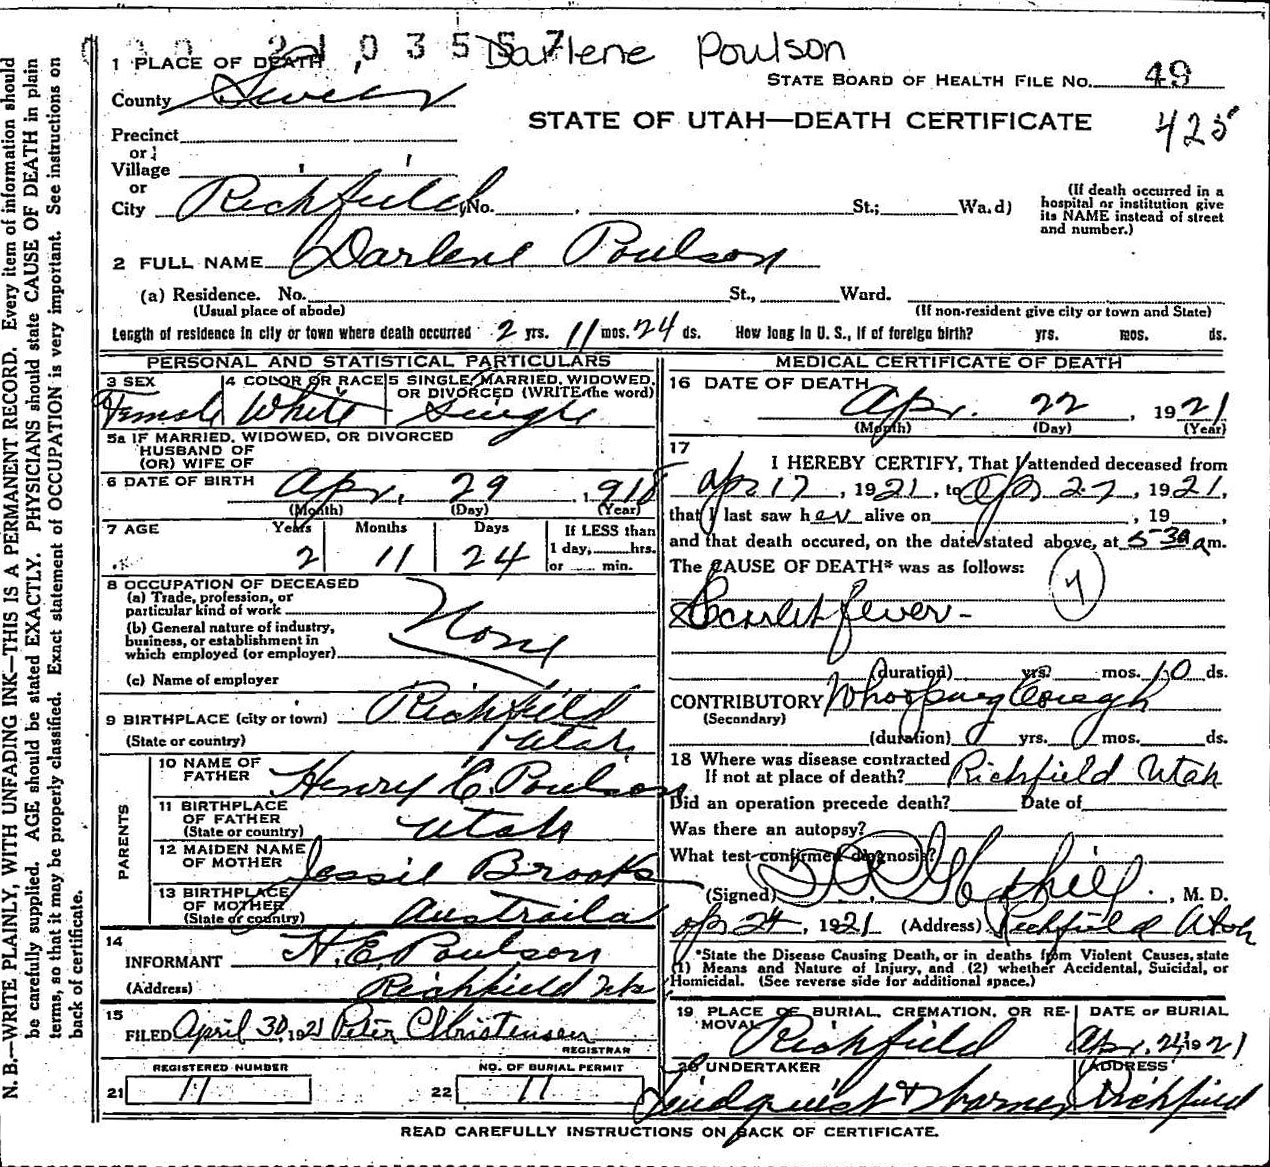 2103557 Darlene Poulson
1 PLACE OF DEATH
STATE BOARD OF HEALTH FILE NO. 49
County Sevier
STATE OF UTAH—DEATH CERTIFICATE 425
Precinct
or
Village
or
City Richfield (No. St.; Wa.d)
(If death occurred in a hospital or institution give its NAME instead of street and number.)
2 FULL NAME Darlene Poulson
(a) Residence. No. St., Ward.
(Usual place of abode) (If non-resident give city or town and State)
Length of residence in city or town where death occurred 2 yrs. 11 mos. 24 ds. How long in U. S., if of foreign birth? yrs. mos. ds.
PERSONAL AND STATISTICAL PARTICULARS
3 SEX 4 COLOR OR RACE 5 SINGLE, MARRIED, WIDOWED,
OR DIVORCED (WRITE the word)
Female White Single
5a IF MARRIED, WIDOWED, OR DIVORCED
HUSBAND OF
(OR) WIFE OF
6 DATE OF BIRTH Apr. 29, 1918
(Month) (Day) (Year)
7 AGE Years Months Days If LESS than
1 day, hrs.
2 11 24 or min.
8 OCCUPATION OF DECEASED
(a) Trade, profession, or
particular kind of work
None
(b) General nature of industry,
business, or establishment in
which employed (or employer)
(c) Name of employer
9 BIRTHPLACE (city or town) Richfield
(State or country) Utah
PARENTS
10 NAME OF
FATHER Henry E. Poulson
11 BIRTHPLACE
OF FATHER
(State or country) Utah
12 MAIDEN NAME
OF MOTHER Jessie Brooks
13 BIRTHPLACE
OF MOTHER
(State or country) Austraila
14
INFORMANT H. E. Poulson
(Address) Richfield Utah
15
FILED April 30, 1921 Peter Christensen
REGISTRAR
REGISTERED NUMBER NO. OF BURIAL PERMIT
21 11 22 11
MEDICAL CERTIFICATE OF DEATH
16 DATE OF DEATH
Apr. 22, 1921
(Month) (Day) (Year)
17
I HEREBY CERTIFY, That I attended deceased from
Apr 17, 1921, to Apr 22, 1921,
that I last saw her alive on , 19 ,
and that death occured, on the date stated above, at 5-30 am.
The CAUSE OF DEATH* was as follows:
Scarlet fever-
(duration) yrs. mos. 10 ds.
CONTRIBUTORY Whooping Cough
(Secondary)
(duration) yrs. mos. ds.
18 Where was disease contracted
If not at place of death? Richfield Utah
Did an operation precede death? Date of
Was there an autopsy?
What test confirmed diagnosis?
(Signed) , M. D.
Apr 24, 1921 (Address) Richfield Utah
*State the Disease Causing Death, or in deaths from Violent Causes, state
(1) Means and Nature of Injury, and (2) whether Accidental, Suicidal, or
Homicidal. (See reverse side for additional space.)
19 PLACE OF BURIAL, CREMATION, OR RE- DATE OF BURIAL
MOVAL Richfield Apr. 24, 1921
20 UNDERTAKER ADDRESS
Richfield
READ CAREFULLY INSTRUCTIONS ON BACK OF CERTIFICATE.
N. B.—WRITE PLAINLY, WITH UNFADING INK—THIS IS A PERMANENT RECORD. Every item of information should
be carefully supplied. AGE should be stated EXACTLY. PHYSICIANS should state CAUSE OF DEATH in plain
terms, so that it may be properly classified. Exact statement of OCCUPATION is very important. See instructions on
back of certificate.